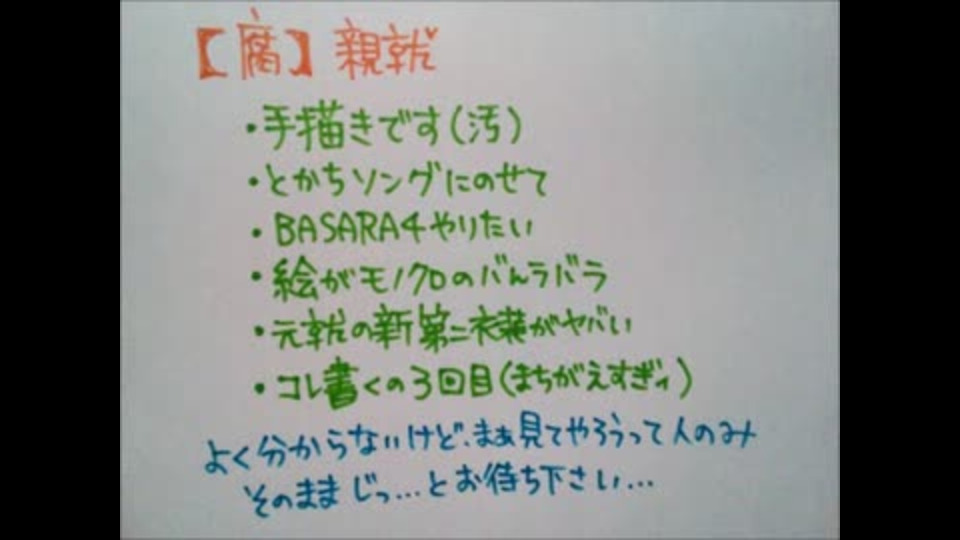 【腐】親就
・手描きです(汚)
・とかちソングにのせて
・BASARA4やりたい
・絵がモノクロのバんラバラ
・元就の新第二衣装がヤバい
・コレ書くの3回目(まちがえすぎィ)
よく分からないけど、まぁ見てやろうって人のみ
そのままじっ…とお待ち下さい…